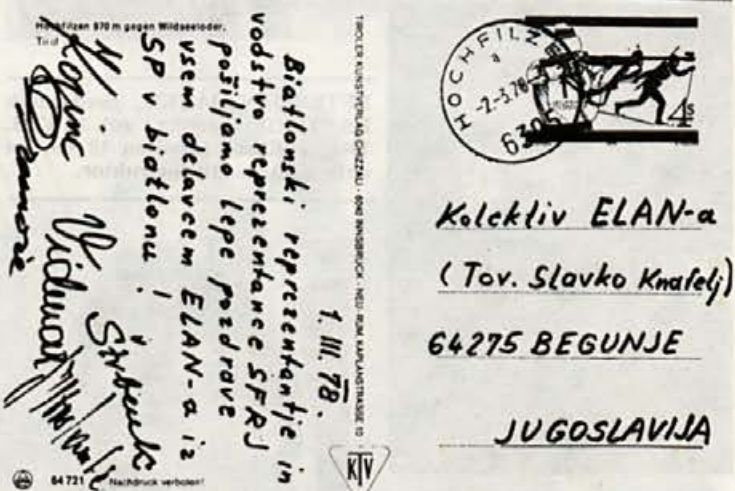 Hochfilzen 970 m gegen Wildseeloder.
Tirol
1. III. 78.
Biatlonski reprezentantje in
vodstvo reprezentance SFRJ
pošiljamo lepe pozdrave
vsem delavcem ELAN-a iz
SP v biatlonu!
Vidmar
64 721
Nachdruck verboten!
TIROLER KUNSTVERLAG CHIZZALI · 6040 INNSBRUCK - NEU-RUM KAPLANSTRASSE 10
KTV
HOCHFILZEN
a
-2.-3.78
6395
4s
Kolektiv ELAN-a
(Tov. Slavko Knafelj)
64275 BEGUNJE
JUGOSLAVIJA